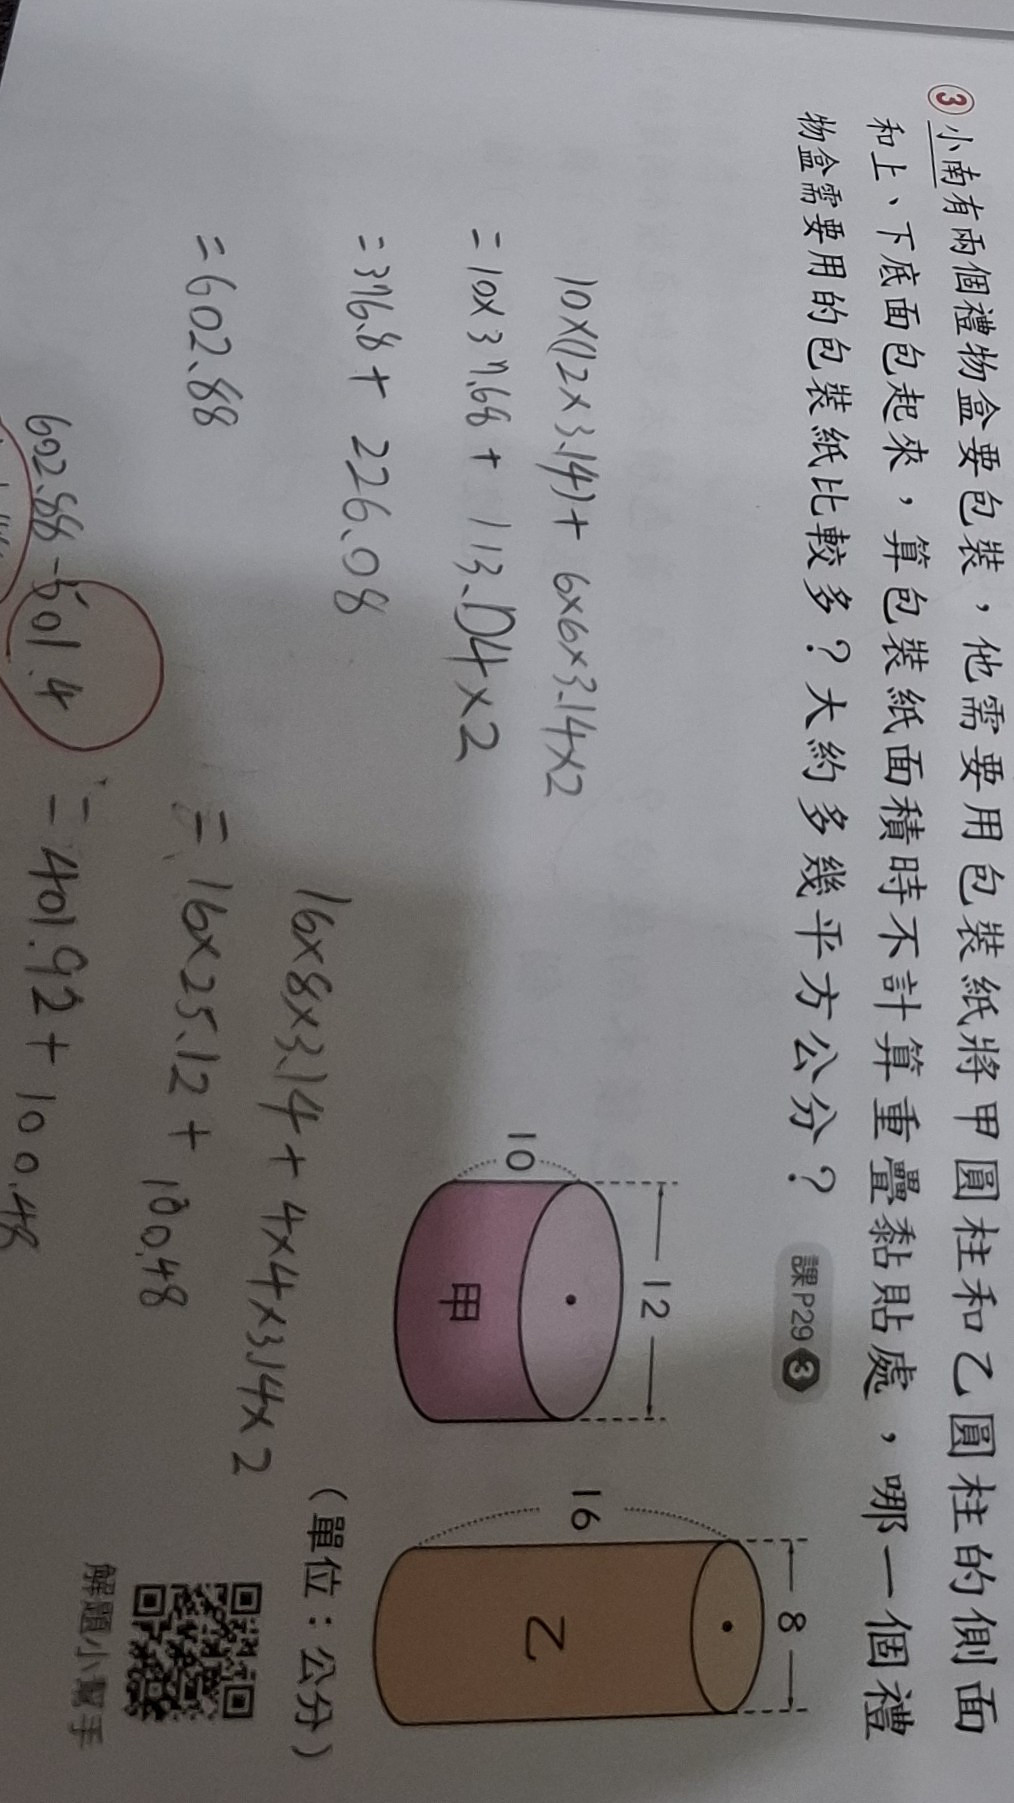 ③小南有兩個禮物盒要包裝，他需要用包裝紙將甲圓柱和乙圓柱的側面
和上、下底面包起來，算包裝紙面積時不計算重疊黏貼處，哪一個禮
物盒需要用的包裝紙比較多？大約多幾平方公分？ 課P29 3
10×(12×3.14)+6×6×3.14×2
=10×37.68+113.04×2
=376.8+226.08
=602.88
12
10
甲
8
16
乙
(單位：公分)
16×8×3.14+4×4×3.14×2
=16×25.12+100.48
=401.92+100.48
602.88-501.4
解題小幫手